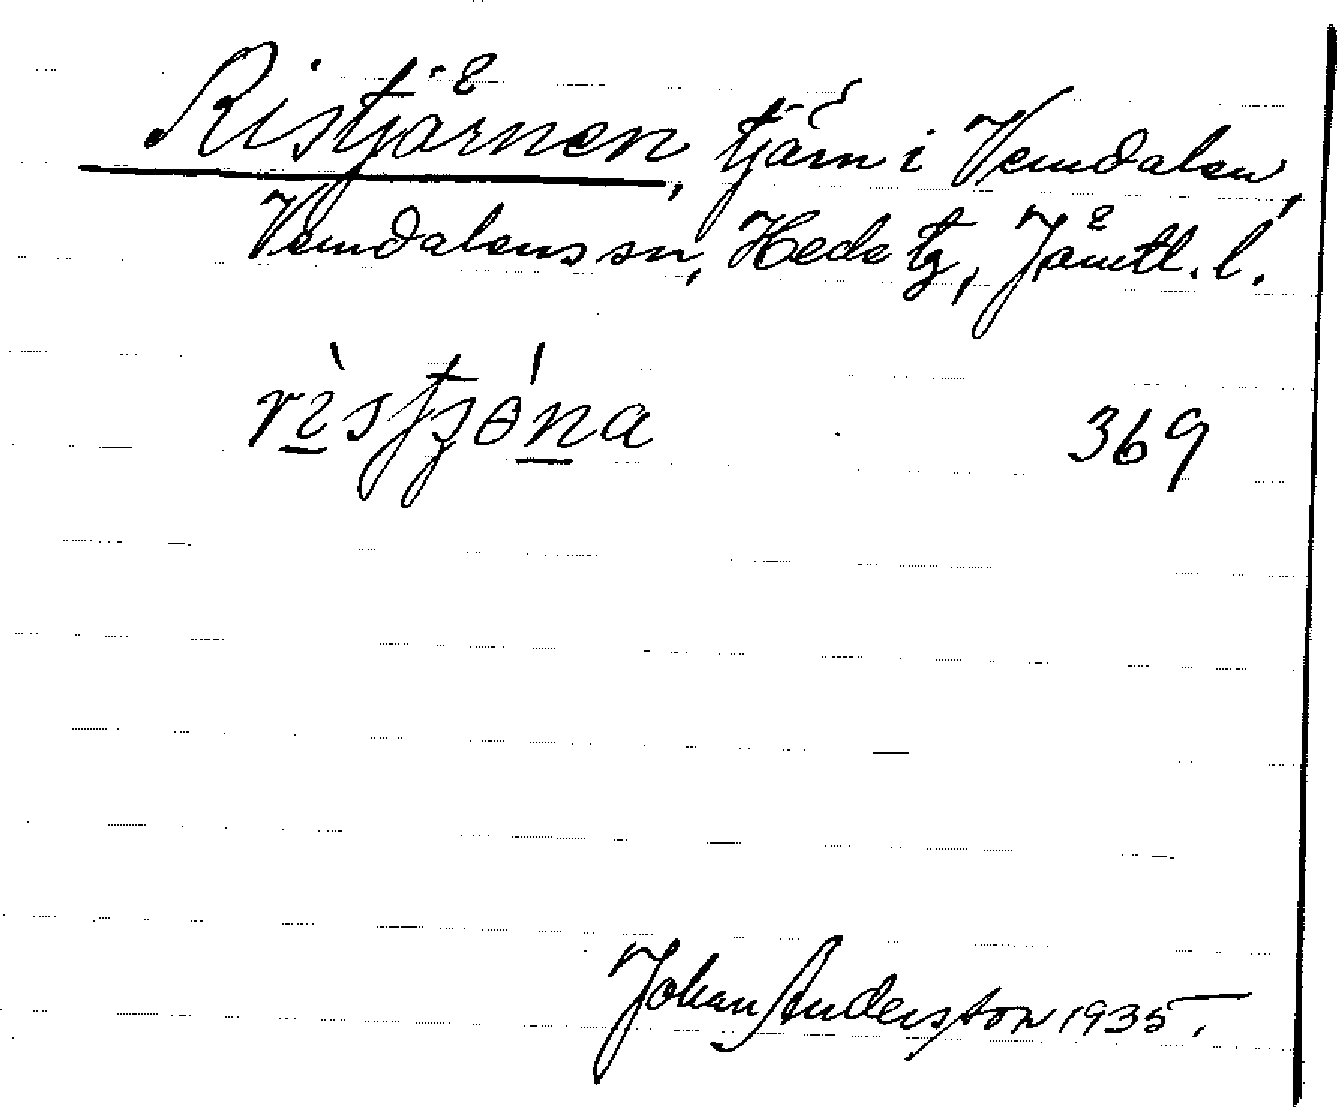 Ristjärnen, tjärn i Vemdalen,
Vemdalens sn, Hede tg, Jämtl. l.
rìstjɵ́na 369
Johan Anderston 1935.